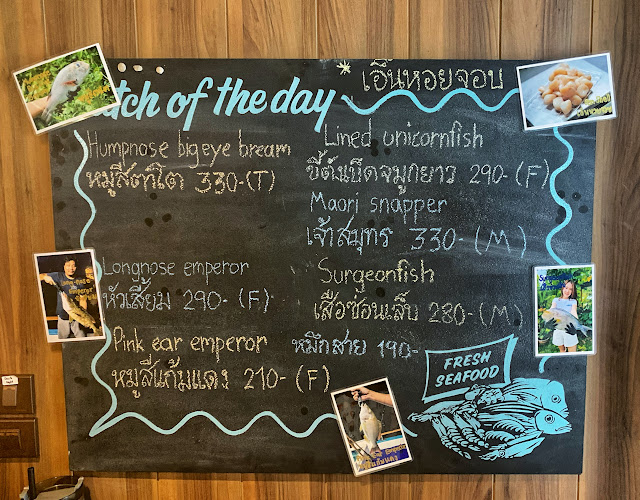 Catch of the day
* เอ็นหอยจอบ
Humpnose bigeye bream
หมูสีตาโต 330-(T)
Longnose emperor
หัวเสี้ยม 290- (F)
Pink ear emperor
หมูสีแก้มแดง 210- (F)
Lined unicornfish
ขี้ตังเบ็ดจมูกยาว 290- (F)
Maori snapper
เจ้าสมุทร 330- (M)
Surgeonfish
เสือซ่อนเล็บ 280- (M)
หมึกสาย 190-
FRESH
SEAFOOD